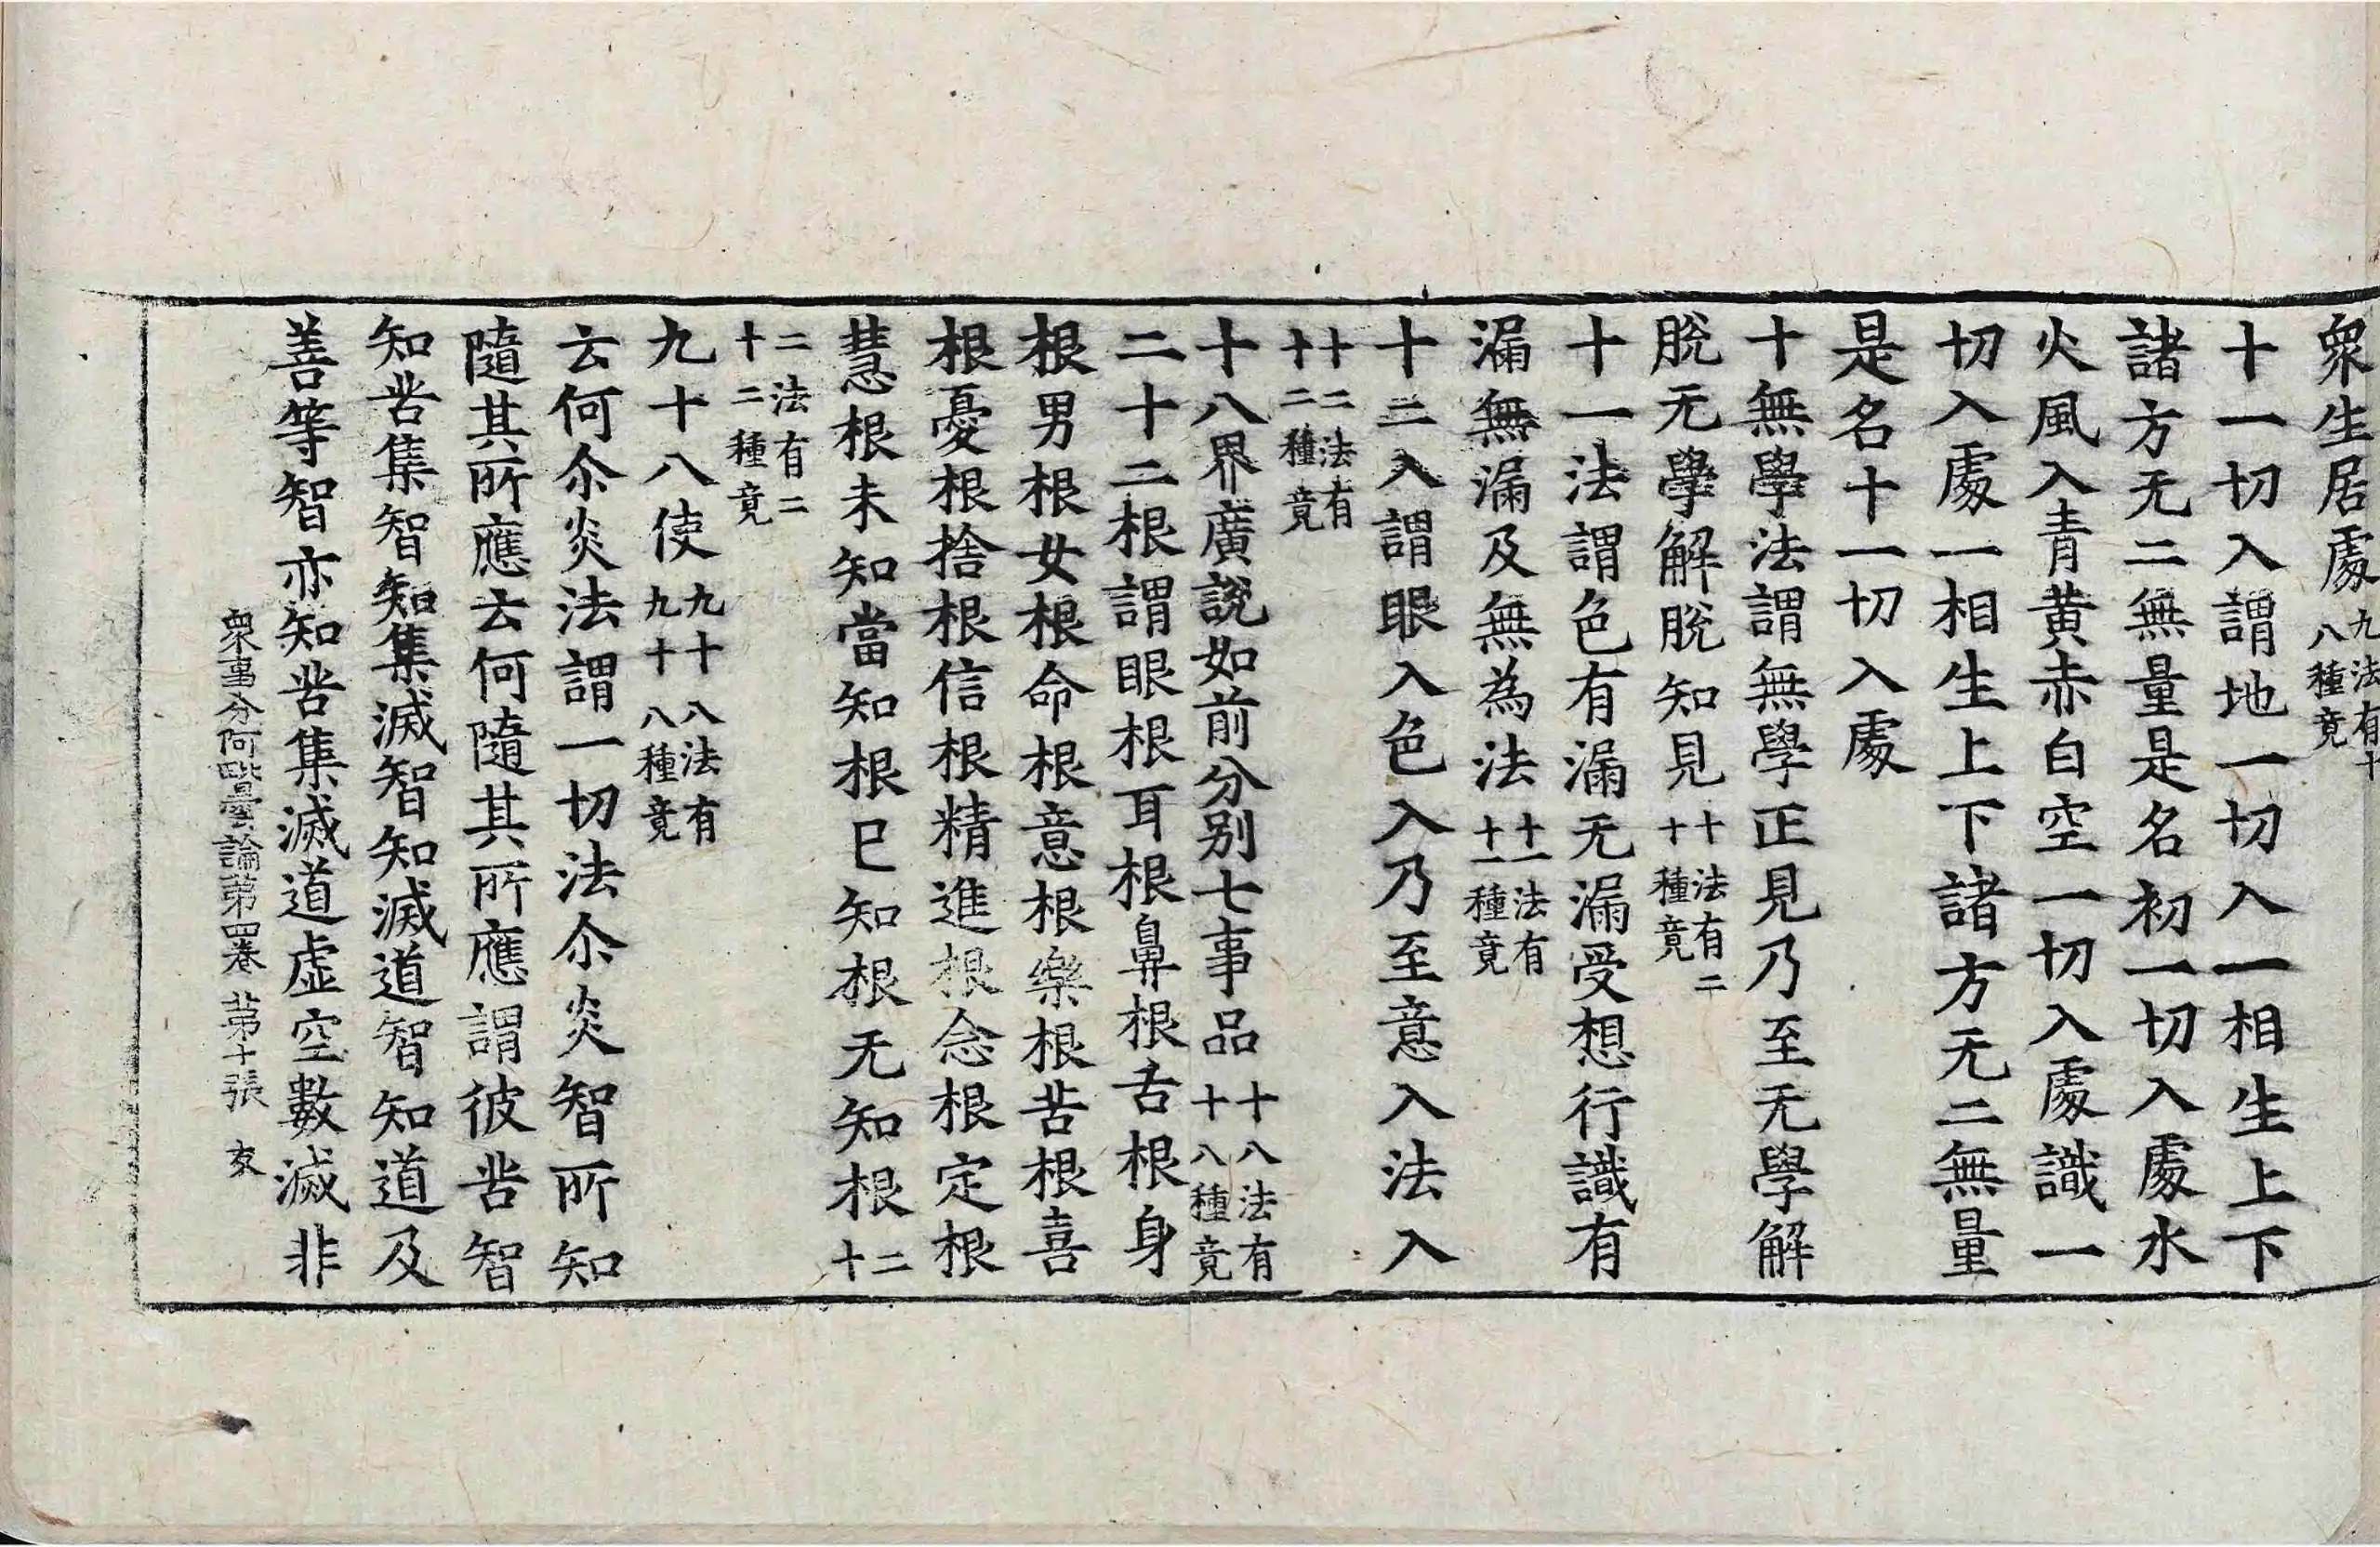 眾生居處九法有十八種竟
十一切入謂地一切入一相生上下
諸方无二無量是名初一切入處水
火風入青黃赤白空一切入處識一
切入處一相生上下諸方无二無量
是名十一切入處
十無學法謂無學正見乃至无學解
脫无學解脫知見十法有二十種竟
十一法謂色有漏无漏受想行識有
漏無漏及無為法十一法有十一種竟
十二入謂眼入色入乃至意入法入
十二法有十二種竟
十八界廣說如前分別七事品十八法有十八種竟
二十二根謂眼根耳根鼻根舌根身
根男根女根命根意根樂根苦根喜
根憂根捨根信根精進根念根定根
慧根未知當知根已知根无知根二十
二法有二十二種竟
九十八使九十八法有九十八種竟
云何尒炎法謂一切法尒炎智所知
隨其所應云何隨其所應謂彼苦智
知苦集智知集滅智知滅道智知道及
善等智亦知苦集滅道虛空數滅非
眾事分阿毗曇論第四卷 第十張 友